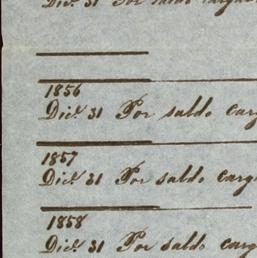 Dic.e 31 Por saldo carga
1856
Dic.e 31 Por saldo carg
1857
Dic.e 31 Por saldo carg
1858
Dic.e 31 Por saldo carg